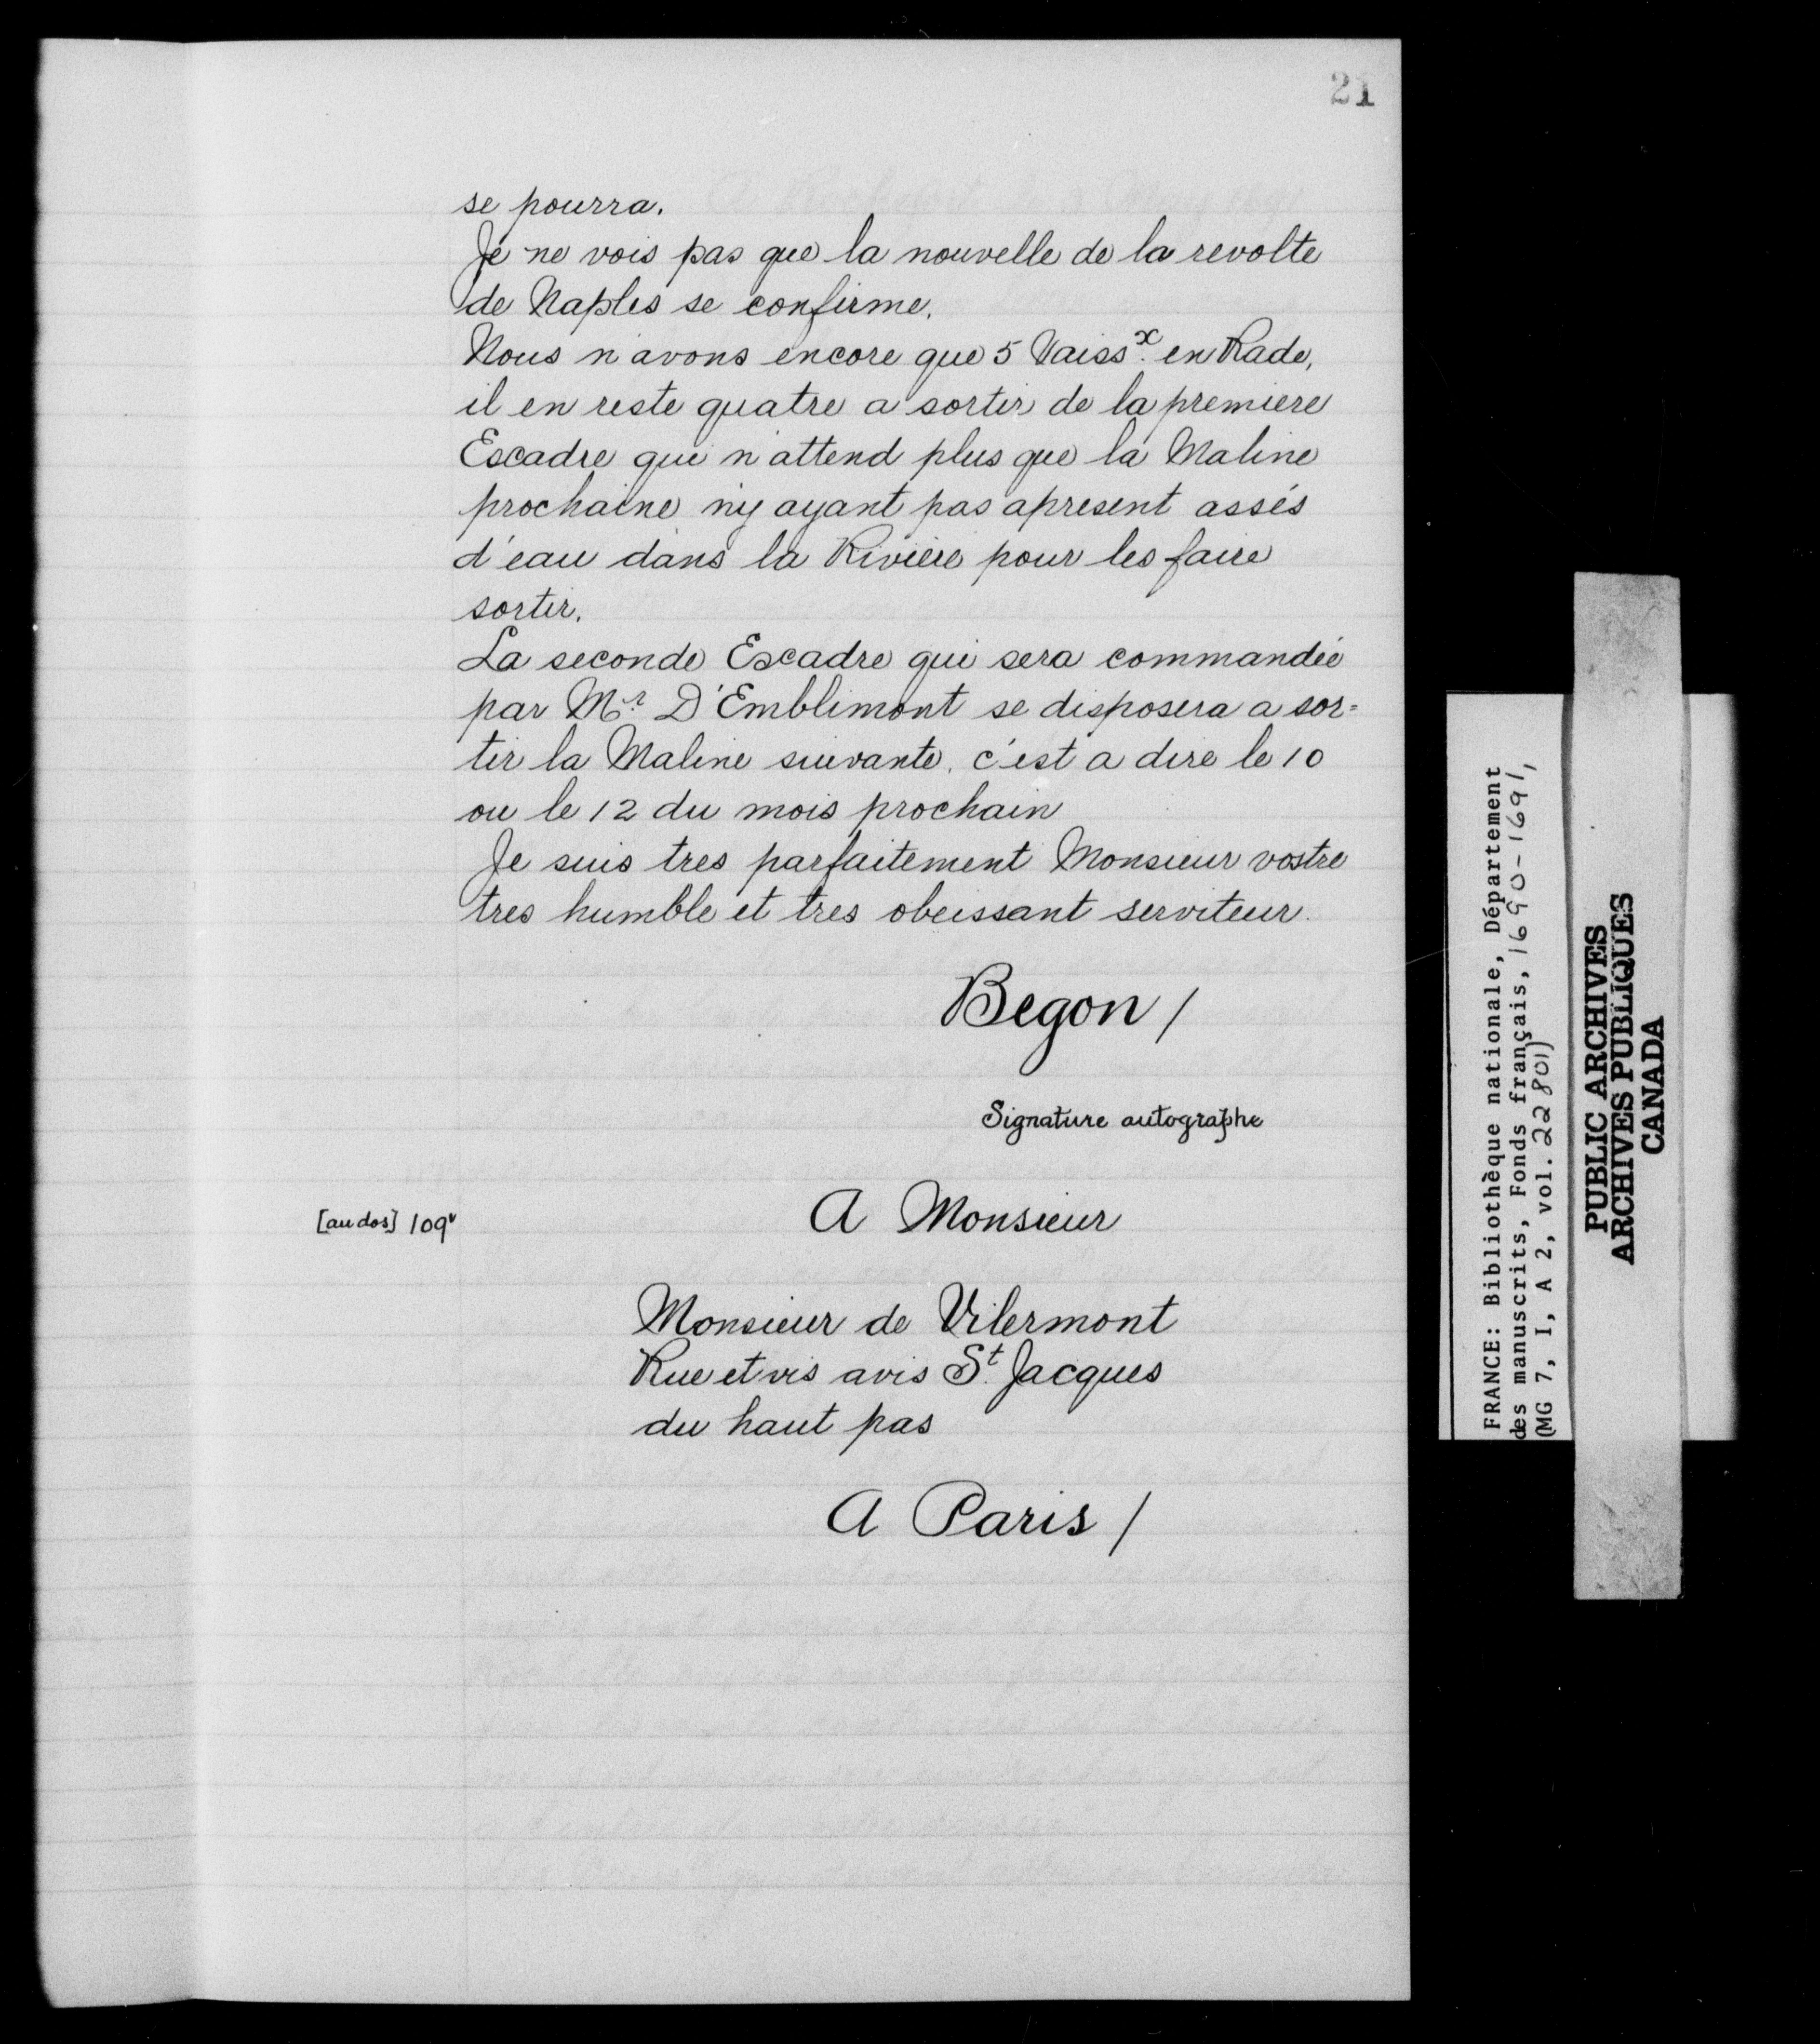 21
se pourra.
Je ne vois pas que la nouvelle de la revolte
de Naples se confirme.
Nous n'avons encore que 5 Vaissx. en Rade,
il en reste quatre a sortir de la premiere
Escadre qui n'attend plus que la Maline
prochaine n'y ayant pas apresent assés
d'eau dans la Riviere pour les faire
sortir.
La seconde Escadre qui sera commandée
par Mr. D'Emblimont se disposera a sor=
tir la Maline suivante, c'est a dire le 10
ou le 12 du mois prochain
Je suis tres parfaitement Monsieur vostre
tres humble et tres obeissant serviteur.
Begon /
Signature autographe
[au dos] 109v
A Monsieur
Monsieur de Vilermont
Rue et vis avis St. Jacques
du haut pas
A Paris /
FRANCE: Bibliothèque nationale, Département
des manuscrits, Fonds français, 1690-1691,
(MG 7, I, A 2, vol. 22801)
PUBLIC ARCHIVES
ARCHIVES PUBLIQUES
CANADA